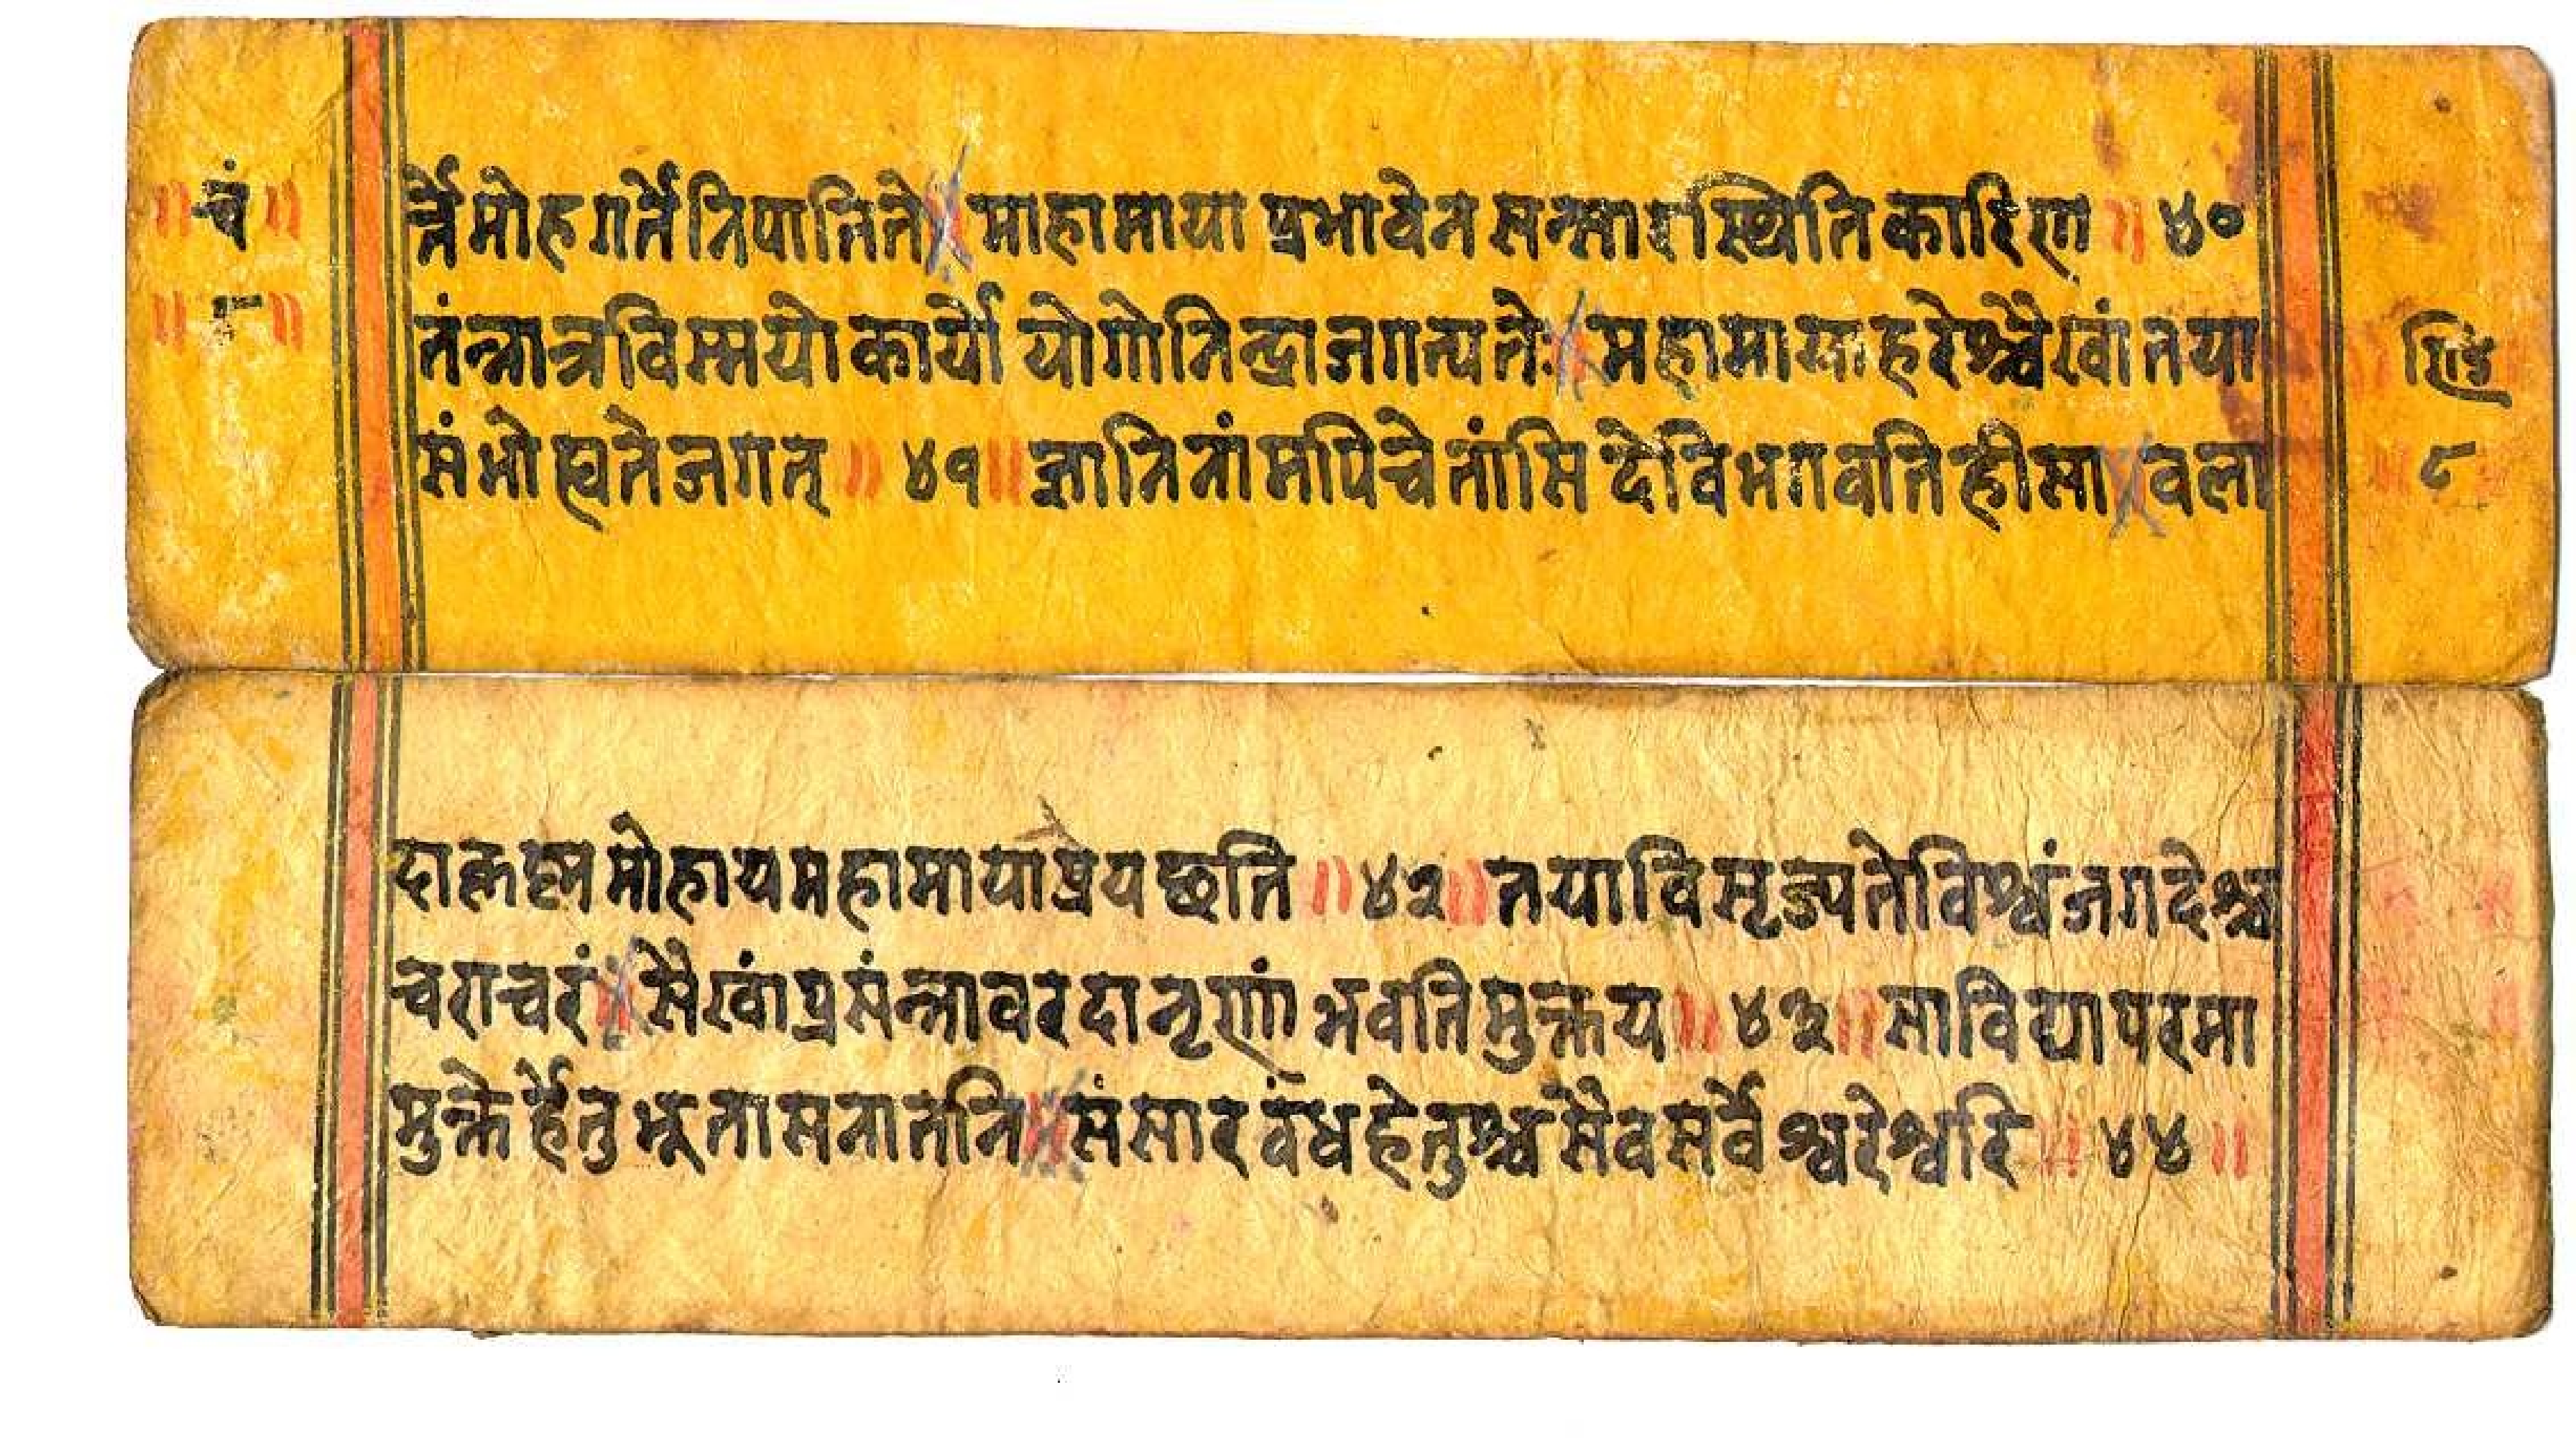 ॥ चं ॥
॥ ८ ॥
र्त्ते मोह गर्ते निपातिते । माहामाया प्रभावेन सन्सारस्थिति कारिणा ॥ ४०
तंन्नात्र विस्मयो कार्यो योगोनिन्द्रा जगत्पतेः । महामाया हरेश्चैस्वां तया
संमोह्यते जगत् ॥ ४१ ॥ ज्ञानिनांमपि चेतांसि देवि भगवति हीसा । वला
चण्डि
८
दाकृष्य मोहाय महामाया प्रेयछति ॥ ४२ ॥ तया विसृज्यते विश्वं जगदेश्च
चराचरं । सैस्वां प्रसंन्नावरदा नृणां भवति मुक्तय ॥ ४३ ॥ सा विद्या परमा
मुक्ते र्हेतु भूता सनातनि । संसार वंध हेतुश्च सैव सर्वे श्वरेश्वरि ॥ ४४ ॥